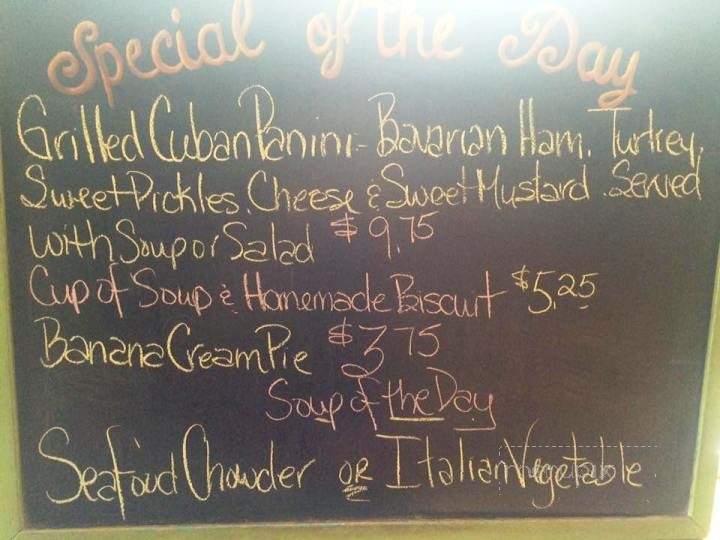 Special of the Day
Grilled Cuban Panini - Bavarian Ham, Turkey,
Sweet Pickles, Cheese & Sweet Mustard. Served
with Soup or Salad $9.75
Cup of Soup & Homemade Biscuit $5.25
Banana Cream Pie $3.75
Soup of the Day
Seafood Chowder or Italian Vegetable